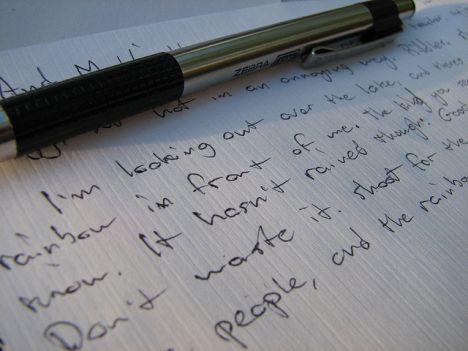 And
ZEBRA
not in an annoying way.
I'm looking out over the lake, and there's
rainbow in front of me. The kind you
know. It hasn't rained though. Good
Don't waste it. Shoot for the
people, and the rainbow